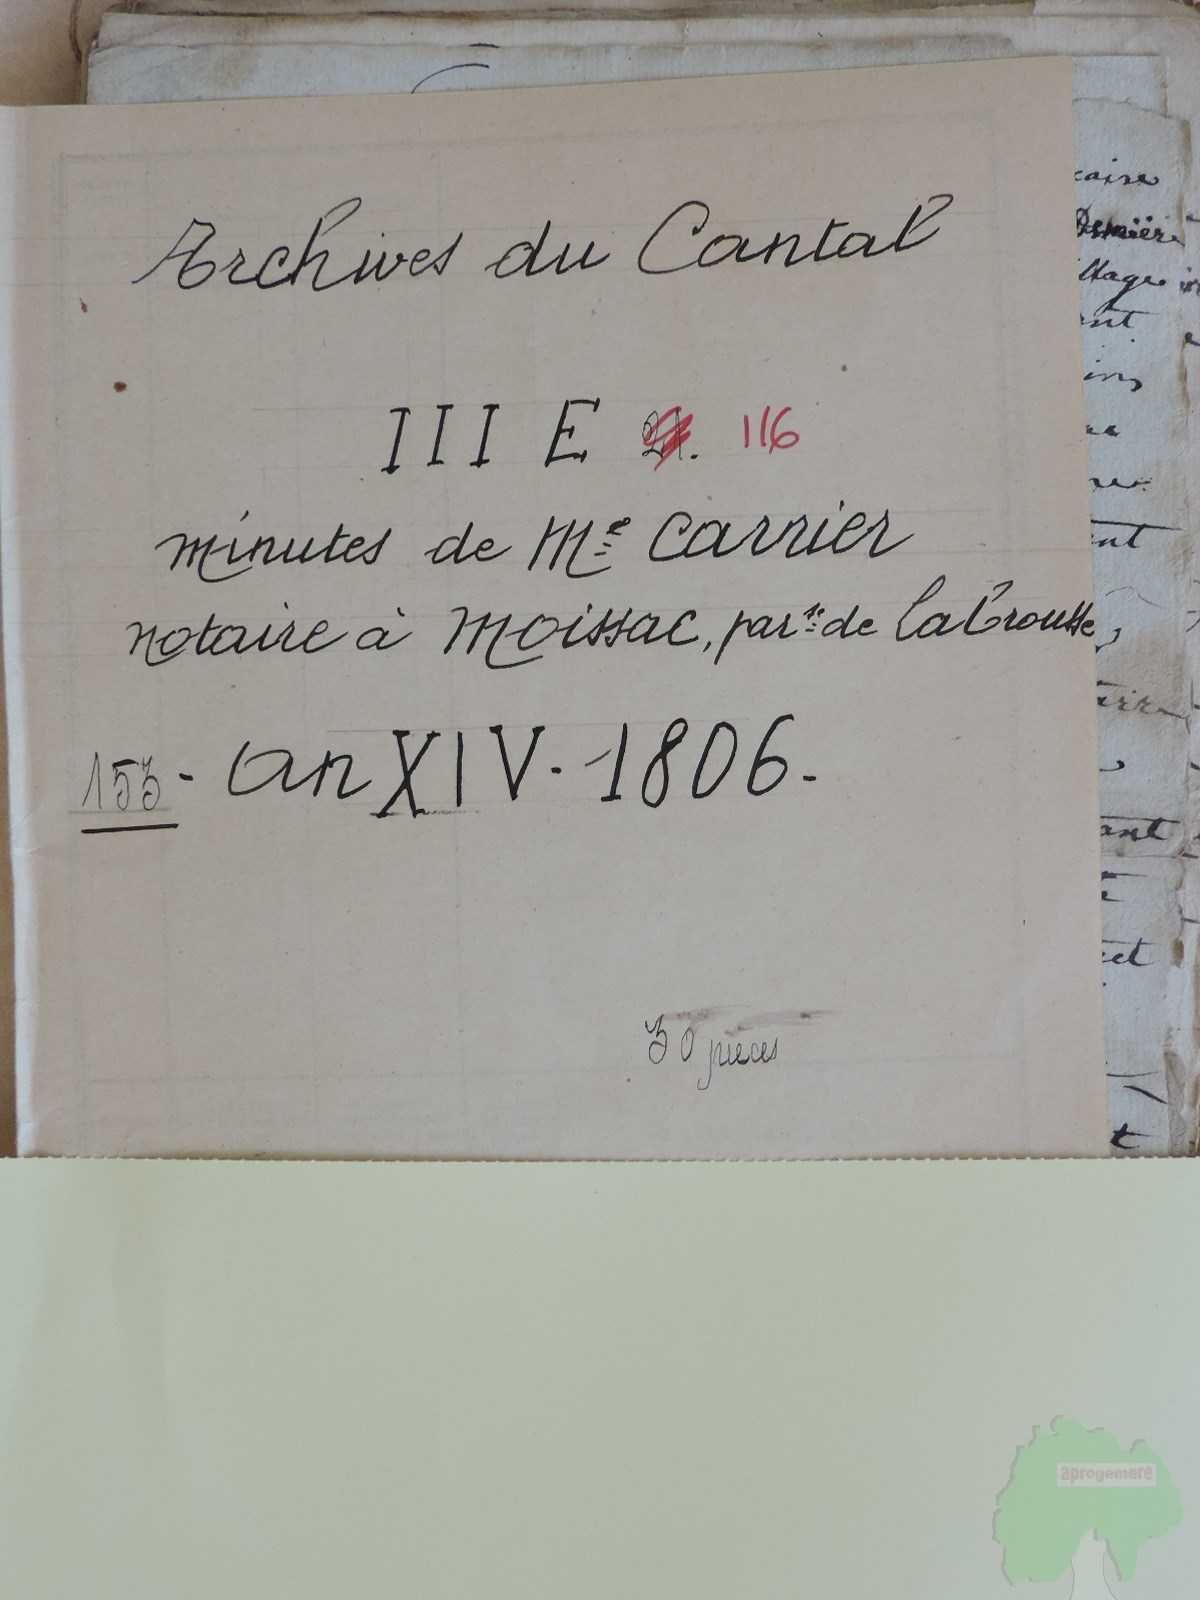 Archives du Cantal
III E 21. 116
minutes de Me Carrier
notaire à Moissac, parse de Labrousse
153 - an XIV - 1806.
30 pièces
caire
ttage
ant
ent
ant
et
aprogemere